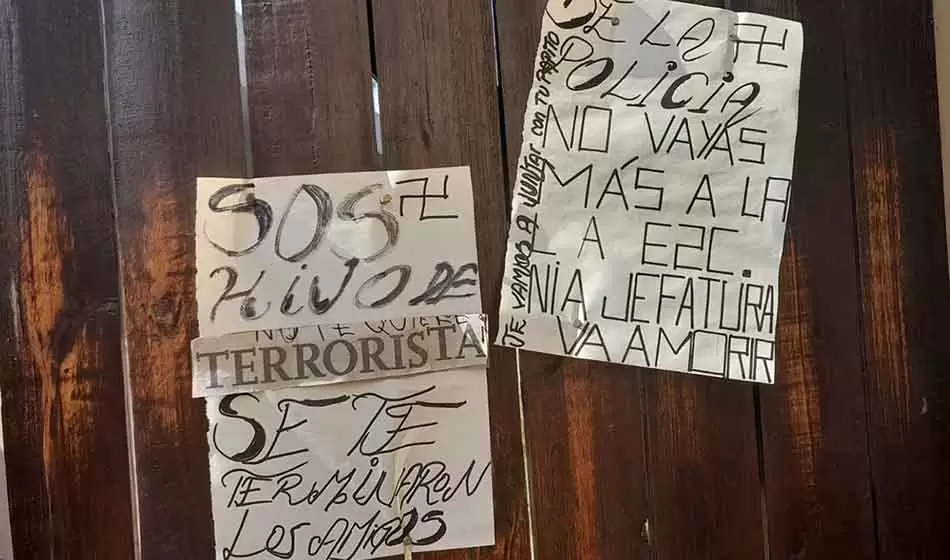 SOS 卍
HIJO DE
NO TE QUIERE
TERRORISTA
SE TE
TERMINARON
LOS AMIGOS
DE LA 卍
POLICIA
NO VAYAS
MÁS A LA
E2C.
NI A JEFATURA
VA A MORIR
TE VAMOS A JUNTAR CON TU PAPITO